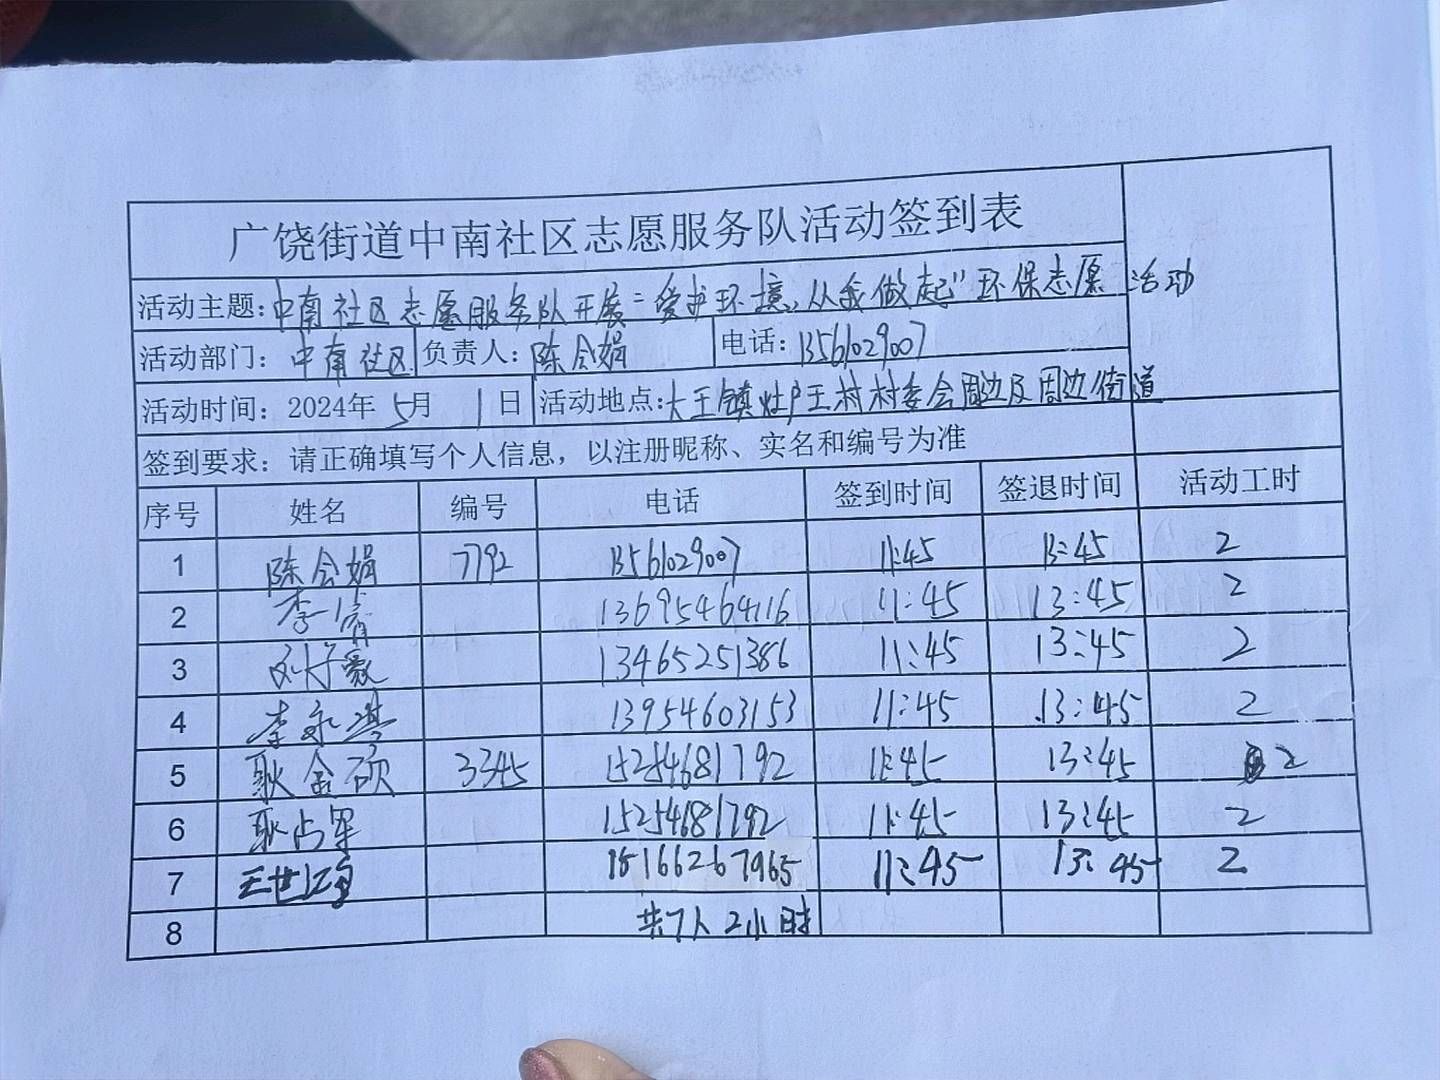 广饶街道中南社区志愿服务队活动签到表
活动主题：中南社区志愿服务队开展"爱护环境，从我做起"环保志愿活动
活动部门：中南社区 负责人：陈会娟 电话：13561029007
活动时间：2024年5月1日 活动地点：大王镇灶户王村村委会周边及周边街道
签到要求：请正确填写个人信息，以注册昵称、实名和编号为准
序号 姓名 编号 电话 签到时间 签退时间 活动工时
1 陈会娟 7792 13561029007 11:45 13:45 2
2 李 13695464116 11:45 13:45 2
3 刘子毅 13465251386 11:45 13:45 2
4 李永琪 13954603153 11:45 13:45 2
5 耿金硕 3345 15254681792 11:45 13:45 2
6 耿占军 15254681792 11:45 13:45 2
7 王世 15166267965 11:45 13:45 2
8 共7人 2小时